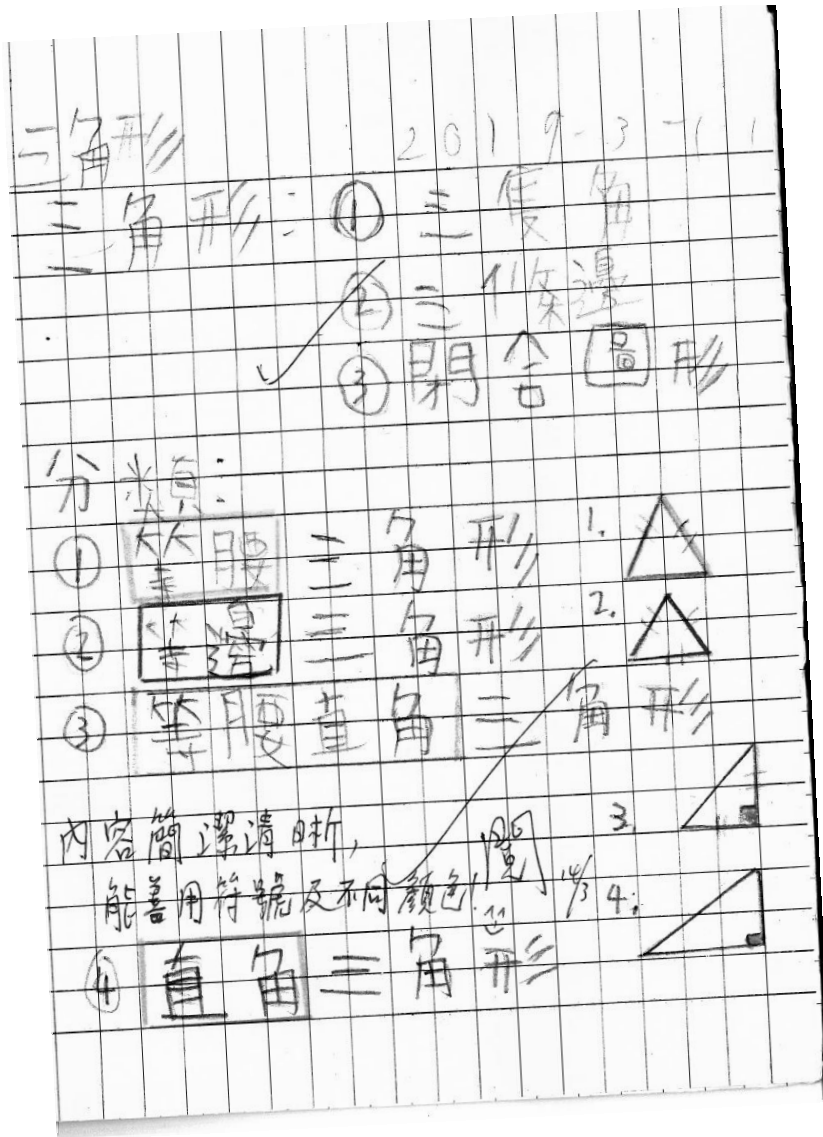 三角形 2019-3-11
三角形：① 三隻角
② 三條邊
③ 閉合圖形
分類：
① 等腰三角形 1.
② 等邊三角形 2.
③ 等腰直角三角形
內容簡潔清晰， 3.
能善用符號及不同顏色! 閱 14/3 4.
④ 直角三角形